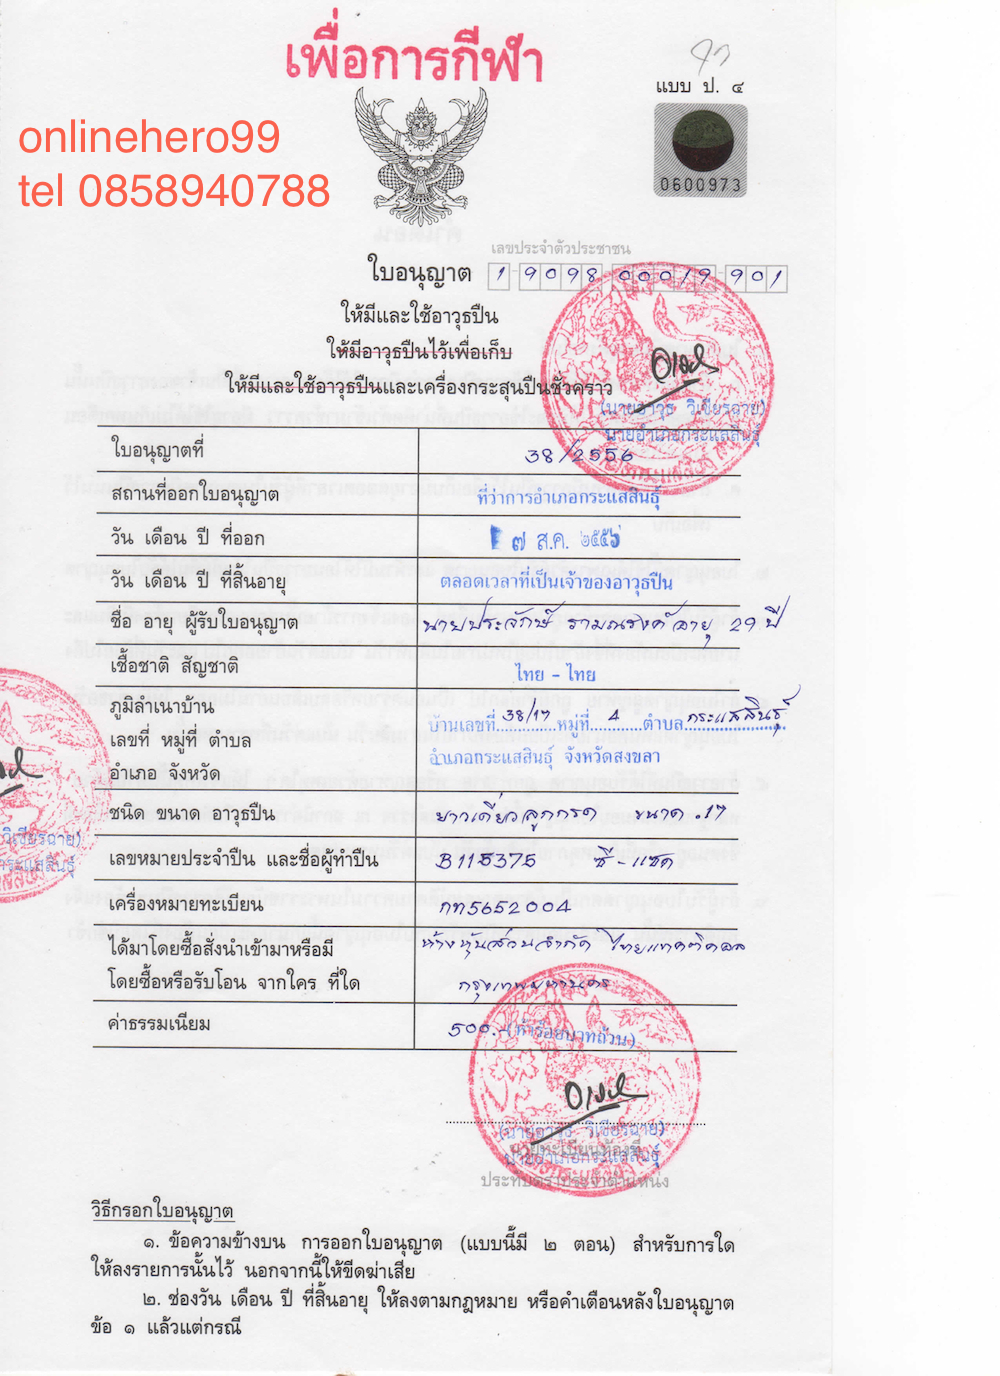 เพื่อการกีฬา
แบบ ป. ๔
onlinehero99
tel 0858940788
0600973
เลขประจำตัวประชาชน
ใบอนุญาต 1 9098 00019 901
ให้มีและใช้อาวุธปืน
ให้มีอาวุธปืนไว้เพื่อเก็บ
ให้มีและใช้อาวุธปืนและเครื่องกระสุนปืนชั่วคราว
(นายอาวุธ วิเชียรฉาย)
นายอำเภอกระแสสินธุ์
ใบอนุญาตที่ 38/2556
สถานที่ออกใบอนุญาต ที่ว่าการอำเภอกระแสสินธุ์
วัน เดือน ปี ที่ออก ๗ ส.ค. ๒๕๕๖
วัน เดือน ปี ที่สิ้นอายุ ตลอดเวลาที่เป็นเจ้าของอาวุธปืน
ชื่อ อายุ ผู้รับใบอนุญาต นายประลักษ์ อายุ 29 ปี
เชื้อชาติ สัญชาติ ไทย - ไทย
ภูมิลำเนาบ้าน
บ้านเลขที่ 38/17 หมู่ที่ 4 ตำบล กระแสสินธุ์
เลขที่ หมู่ที่ ตำบล
อำเภอกระแสสินธุ์ จังหวัดสงขลา
อำเภอ จังหวัด
ชนิด ขนาด อาวุธปืน ยาวเดี่ยวลูกกรด ขนาด .17
วิเชียรฉาย)
กระแสสินธุ์
เลขหมายประจำปืน และชื่อผู้ทำปืน B115375 ซี-แซด
เครื่องหมายทะเบียน กท5652004
ได้มาโดยซื้อสั่งนำเข้ามาหรือมี ห้างหุ้นส่วนจำกัด ไทยแทคติคอล
โดยซื้อหรือรับโอน จากใคร ที่ใด กรุงเทพมหานคร
ค่าธรรมเนียม 500.-(ห้าร้อยบาทถ้วน)
(นายอาวุธ วิเชียรฉาย)
นายทะเบียนท้องที่
นายอำเภอกระแสสินธุ์
ประทับตราประจำตำแหน่ง
วิธีกรอกใบอนุญาต
๑. ข้อความข้างบน การออกใบอนุญาต (แบบนี้มี ๒ ตอน) สำหรับการใด
ให้ลงรายการนั้นไว้ นอกจากนี้ให้ขีดฆ่าเสีย
๒. ช่องวัน เดือน ปี ที่สิ้นอายุ ให้ลงตามกฎหมาย หรือคำเตือนหลังใบอนุญาต
ข้อ ๑ แล้วแต่กรณี